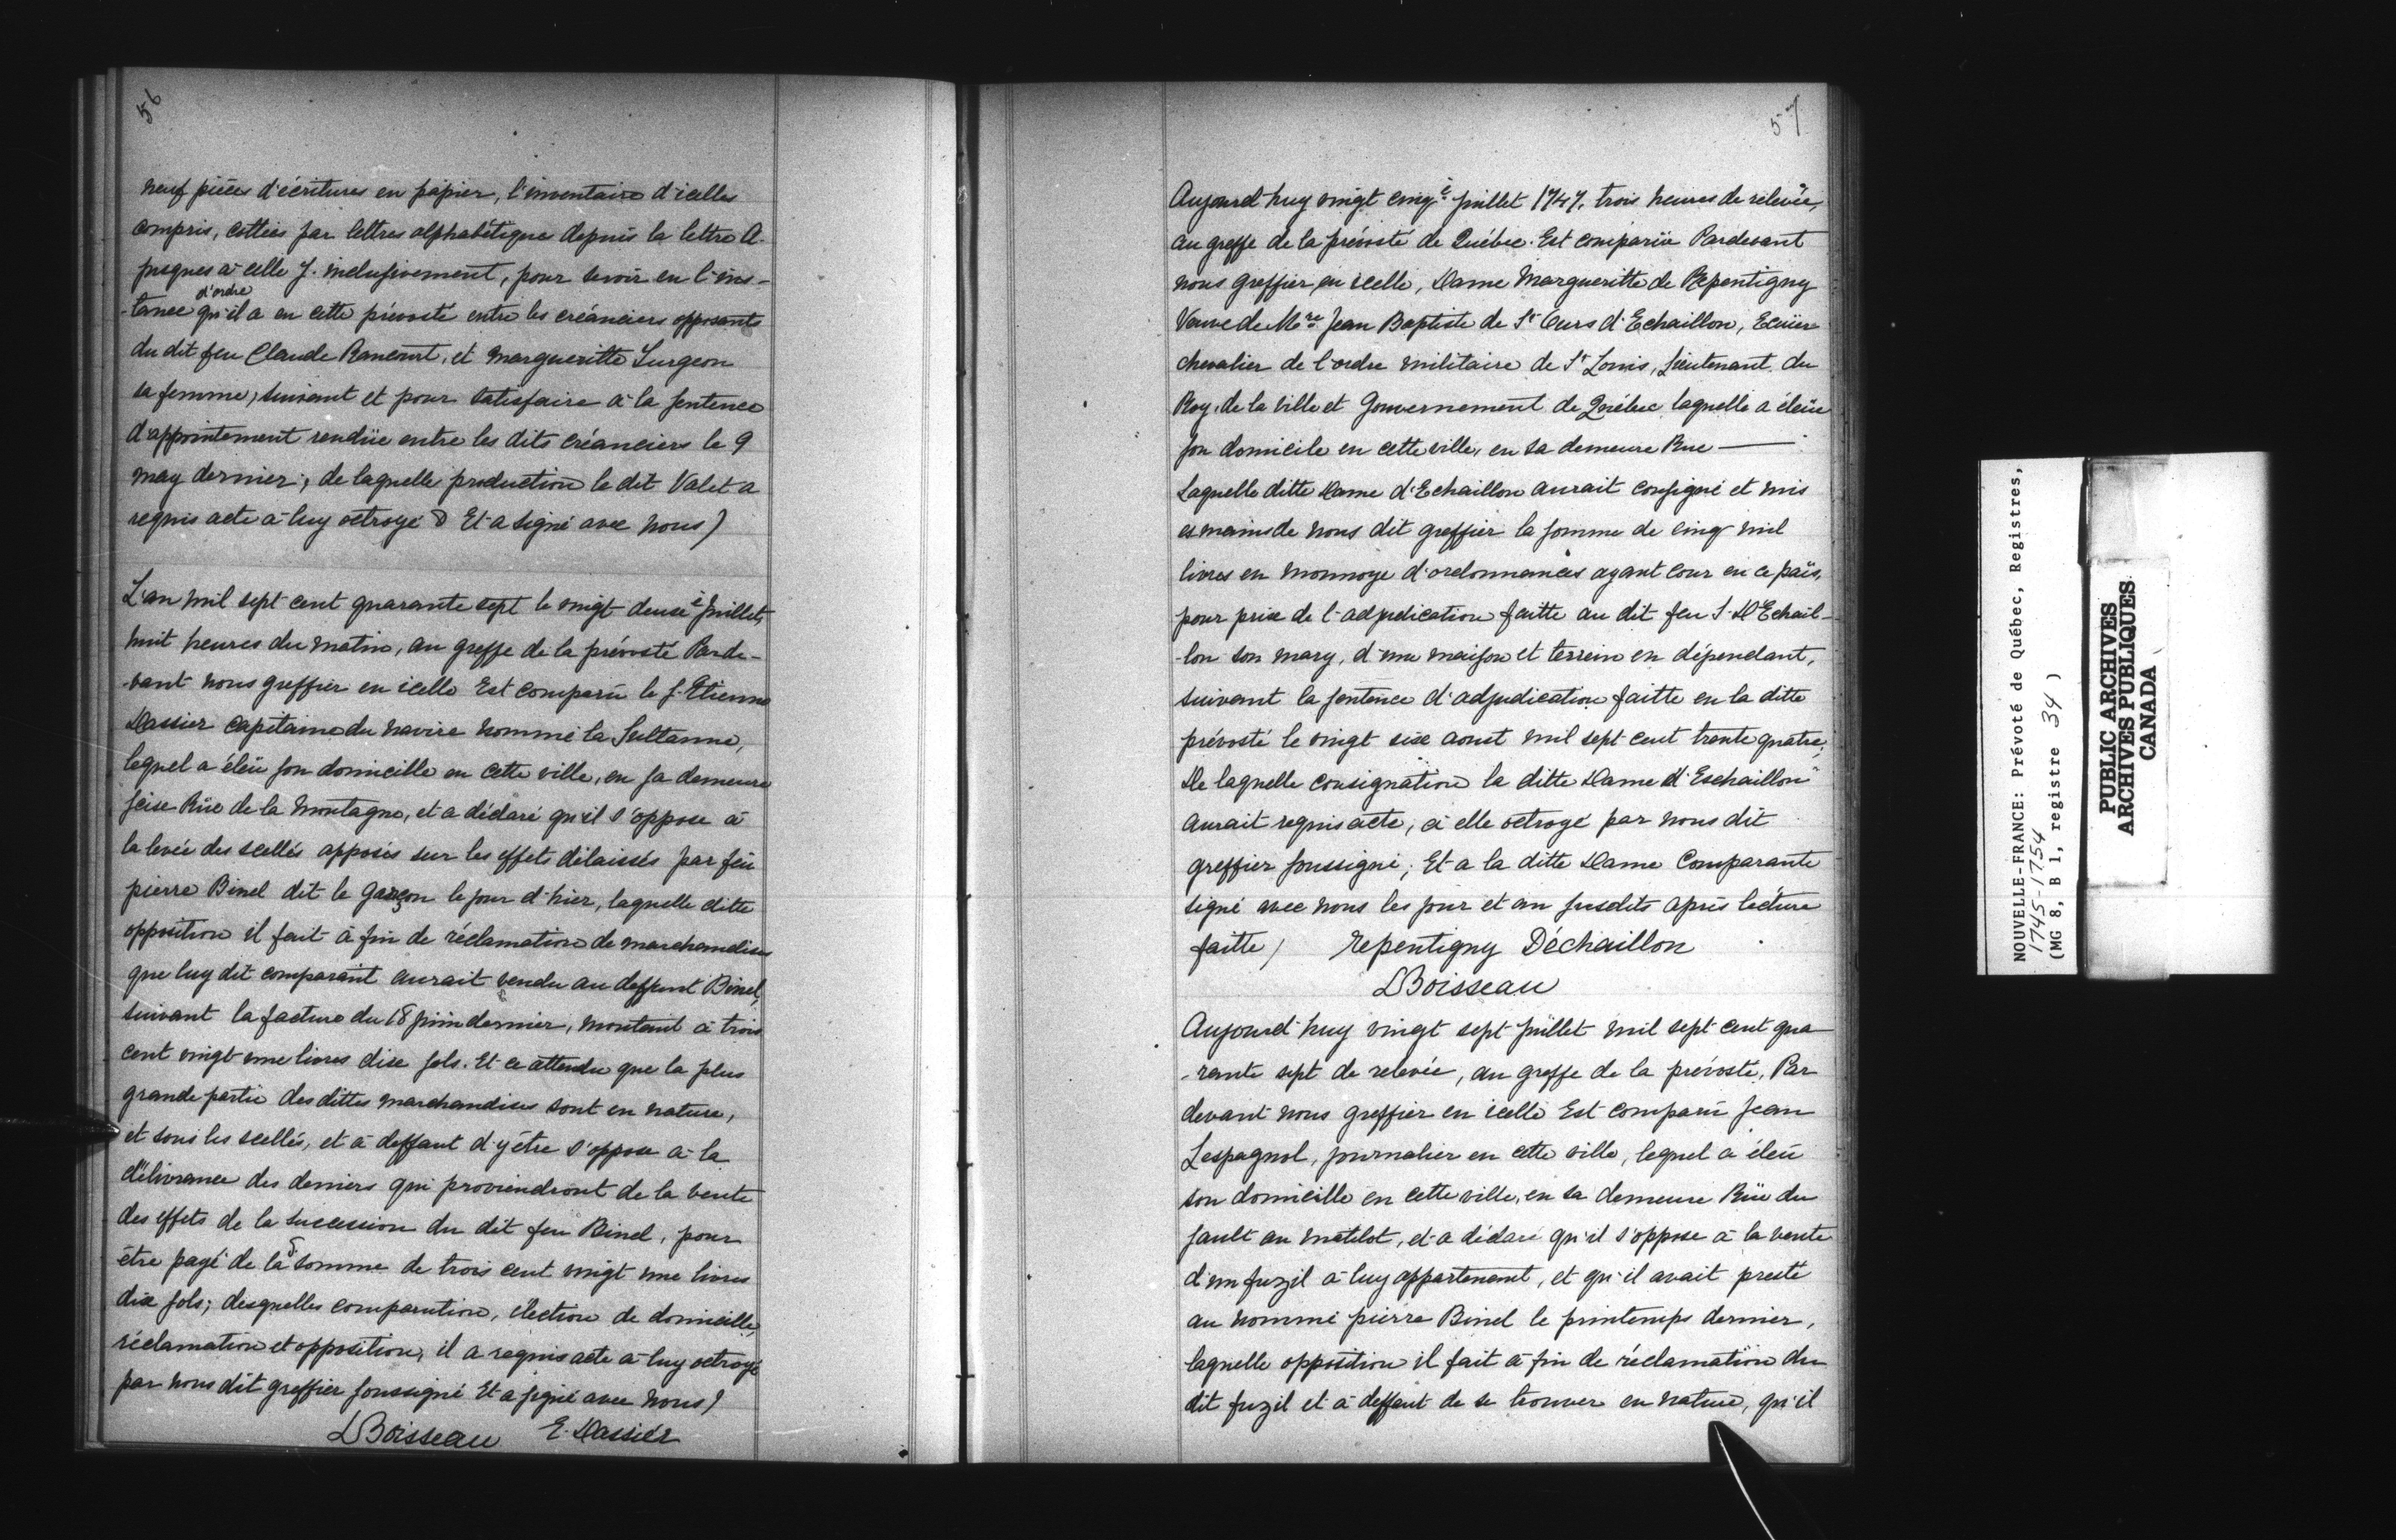 56
neuf pièces d'écritures en papier, l'inventaire d'icelles
compris, cottées par lettres alphabétique depuis la lettre A.
jusques à celle J. inclusivement, pour servir en l'ins-
d'ordre
-tance qu'il a en cette prévosté entre les créanciers opposants
du dit feu Claude Rancourt, et Margueritte Surgeon
sa femme, suivant et pour satisfaire à la sentence
d'appointement rendüe entre les dits créanciers le 9
may dernier; de laquelle production le dit Valet a
requis acte à luy octroyé & Et a signé avec nous)
L'an mil sept cent quarante sept le vingt deuxè Juillet,
huit heures du matin, au greffe de la prévosté Parde-
-vant nous greffier en icelle Est comparu le S. Etienne
Dassier capitaine du navire nommé la Sultanne,
lequel a éleü son domicille en cette ville, en sa demeure
scise Rüe de la Montagne, et a déclaré qu'il s'oppose à
la levée des scellés apposés sur les effets délaissés par feu
pierre Binel dit le Garçon le jour d'hier, laquelle ditte
opposition il fait à fin de réclamation de marchandises
que luy dit comparant aurait vendu au deffunt Binel,
suivant la facture du 18 juin dernier, montant à trois
cent vingt une livres dix sols. Et ce attendu que la plus
grande partie des dittes marchandises sont en nature,
et sous les scellés, et à deffaut d'y être s'oppose à la
délivrance des deniers qui proviendront de la vente
des effets de la succession du dit feu Binel, pour
être payé de la somme de trois cent vingt une livres
dix sols; desquelles comparution, élection de domicille,
réclamation et opposition, il a requis acte à luy octroyé
par nous dit greffier soussigné Et a signé avec nous)
LBoisseau E. Dassier
57
Aujourd'huy vingt cinqè juillet 1747, trois heures de relevée,
au greffe de la prévosté de Québec. Est comparüe Pardevant
nous greffier en icelle, Dame Margueritte de Repentigny
Veuve de Mre Jean Baptiste de St Ours d'Echaillon, Ecüier
chevalier de l'ordre militaire de St Louis, Lieutenant du
Roy, de la ville et Gouvernement de Québec laquelle a éleüe
son domicile en cette ville, en sa demeure Rue ———
Laquelle ditte Dame d'Echaillon aurait consigné et mis
es mains de nous dit greffier la somme de cinq mil
livres en monnoye d'ordonnances ayant cour en ce païs,
pour prix de l'adjudication faitte au dit feu S. D'Echail-
-lon son mary, d'une maison et terrein en dépendant,
suivant la sentence d'adjudication faitte en la ditte
prévosté le vingt six aoust mil sept cent trente quatre;
De laquelle consignation la ditte Dame d'Eschaillon
aurait requis acte, à elle octroyé par nous dit
greffier soussigné; Et a la ditte Dame Comparante
signé avec nous les jour et an susdits après lecture
faitte) Repentigny Déchaillon
LBoisseau
Aujourd'huy vingt sept juillet mil sept cent qua
-rante sept de relevée, au greffe de la prévosté, Par
devant nous greffier en icelle Est comparu Jean
Lespagnol, journalier en cette ville, lequel a éleü
son domicille en cette ville, en sa demeure Rüe du
sault au matelot, et a déclaré qu'il s'oppose à la vente
d'un fuzil à luy appartenant, et qu'il avait presté
au nommé pierre Binel le printemps dernier,
laquelle opposition il fait à fin de réclamation du
dit fuzil et à deffaut de se trouver en nature, qu'il
NOUVELLE-FRANCE: Prévoté de Québec, Registres,
1745-1754
(MG 8, B 1, registre 34 )
PUBLIC ARCHIVES
ARCHIVES PUBLIQUES
CANADA